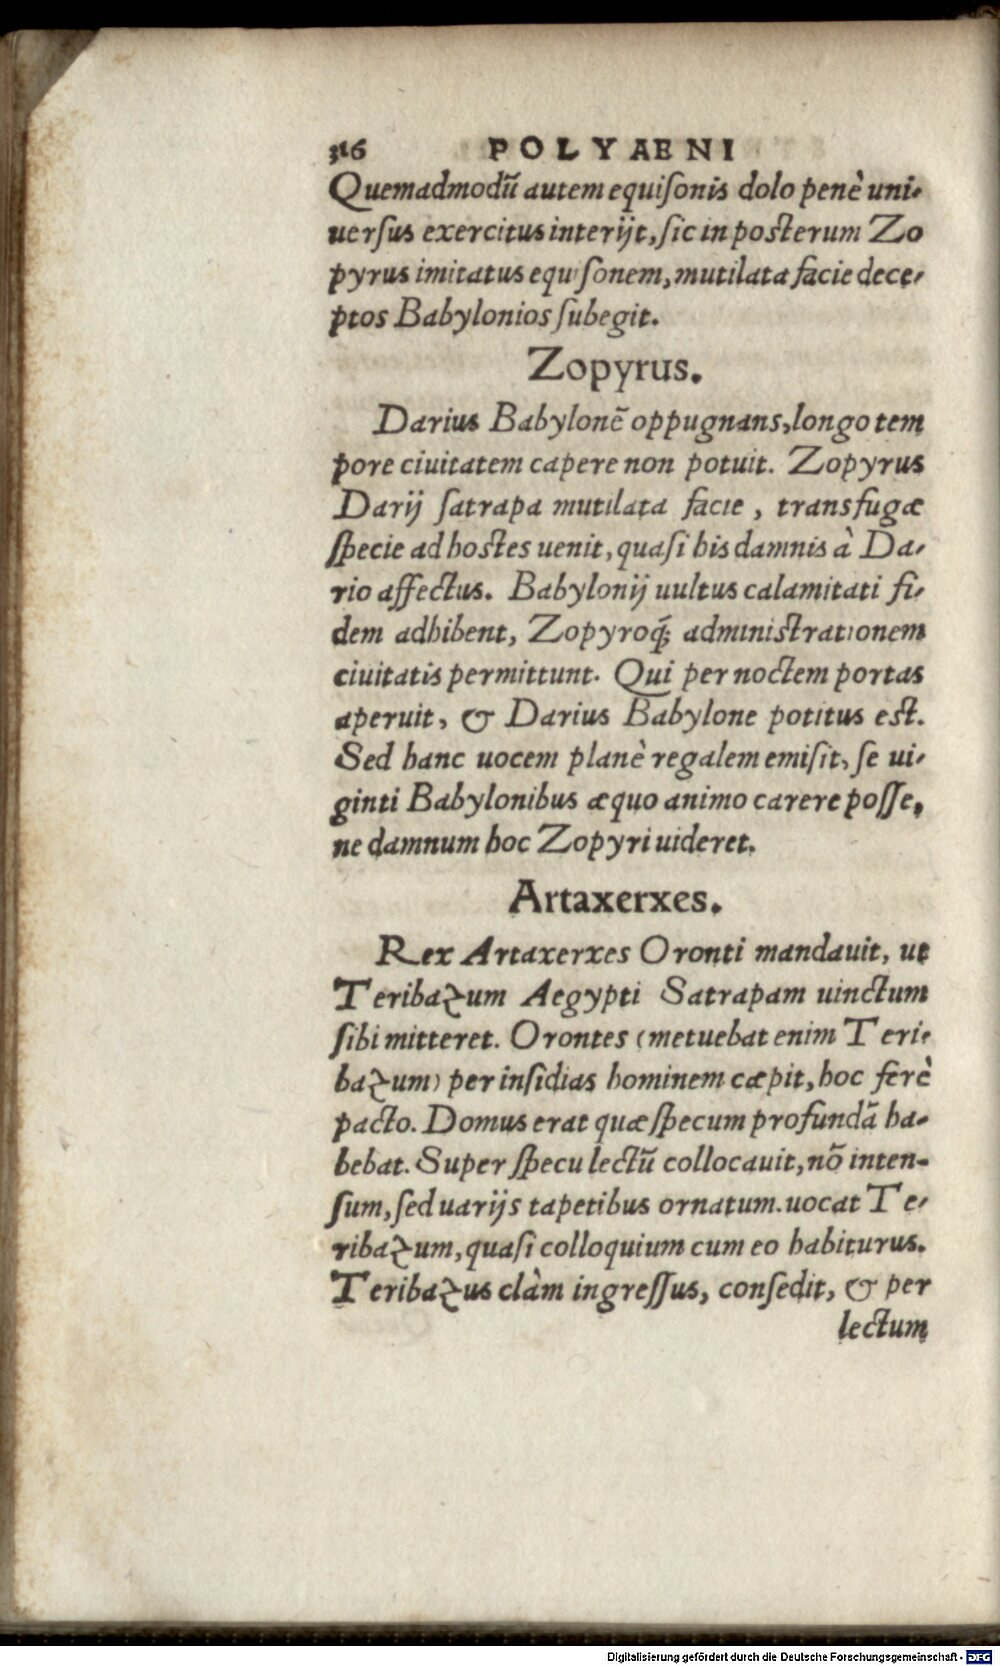 316 POLYAENI
Quemadmodũ autem equisonis dolo penè uni-
uersus exercitus interijt, sic in posterum Zo
pyrus imitatus equisonem, mutilata facie dece-
ptos Babylonios subegit.
Zopyrus.
Darius Babylonẽ oppugnans, longo tem
pore ciuitatem capere non potuit. Zopyrus
Darij satrapa mutilata facie, transfugæ
specie ad hostes uenit, quasi his damnis à Da-
rio affectus. Babylonij uultus calamitati fi-
dem adhibent, Zopyroq́; administrationem
ciuitatis permittunt. Qui per noctem portas
aperuit, & Darius Babylone potitus est.
Sed hanc uocem planè regalem emisit, se ui-
ginti Babylonibus æquo animo carere posse,
ne damnum hoc Zopyri uideret.
Artaxerxes.
Rex Artaxerxes Oronti mandauit, ut
Teribazum Aegypti Satrapam uinctum
sibi mitteret. Orontes (metuebat enim Teri-
bazum) per insidias hominem cæpit, hoc ferè
pacto. Domus erat quæ specum profundã ha-
bebat. Super specu lectũ collocauit, nõ inten-
sum, sed uarijs tapetibus ornatum. uocat Te-
ribazum, quasi colloquium cum eo habiturus.
Teribazus clàm ingressus, consedit, & per
lectum
Digitalisierung gefördert durch die Deutsche Forschungsgemeinschaft - DFG